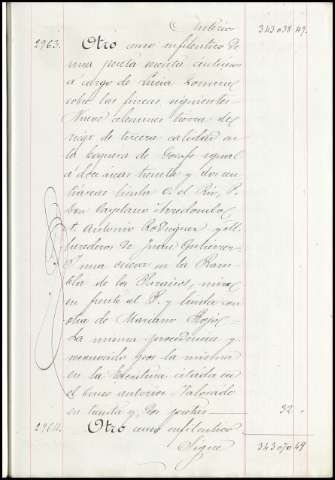 Anterior 343038.49.
2963. Otro censo enfiteutico de
una peseta noventa centimos
á cargo de Lucia Gomine,
sobre las fincas siguientes.
Nueve celemines tierra de
riego de tercera calidad en
la boquera de igual
á doce areas treinta y dos cen
tiáreas linda O. el Rio, P.
Don Cayetano Arredondo
N. Antonio Rodriguez y M.
herederos de Juan Gutierrez
Y una cueva en la Ram-
bla de los mira
su frente al P. y linda con
otra de Mariano
La misma procedencia y
reconocida por la misma
en la Escritura citada en
el censo anterior. Valorado
en treinta y dos pesetas 32 .
2964. Otro censo enfiteutico
Sigue 343070 49